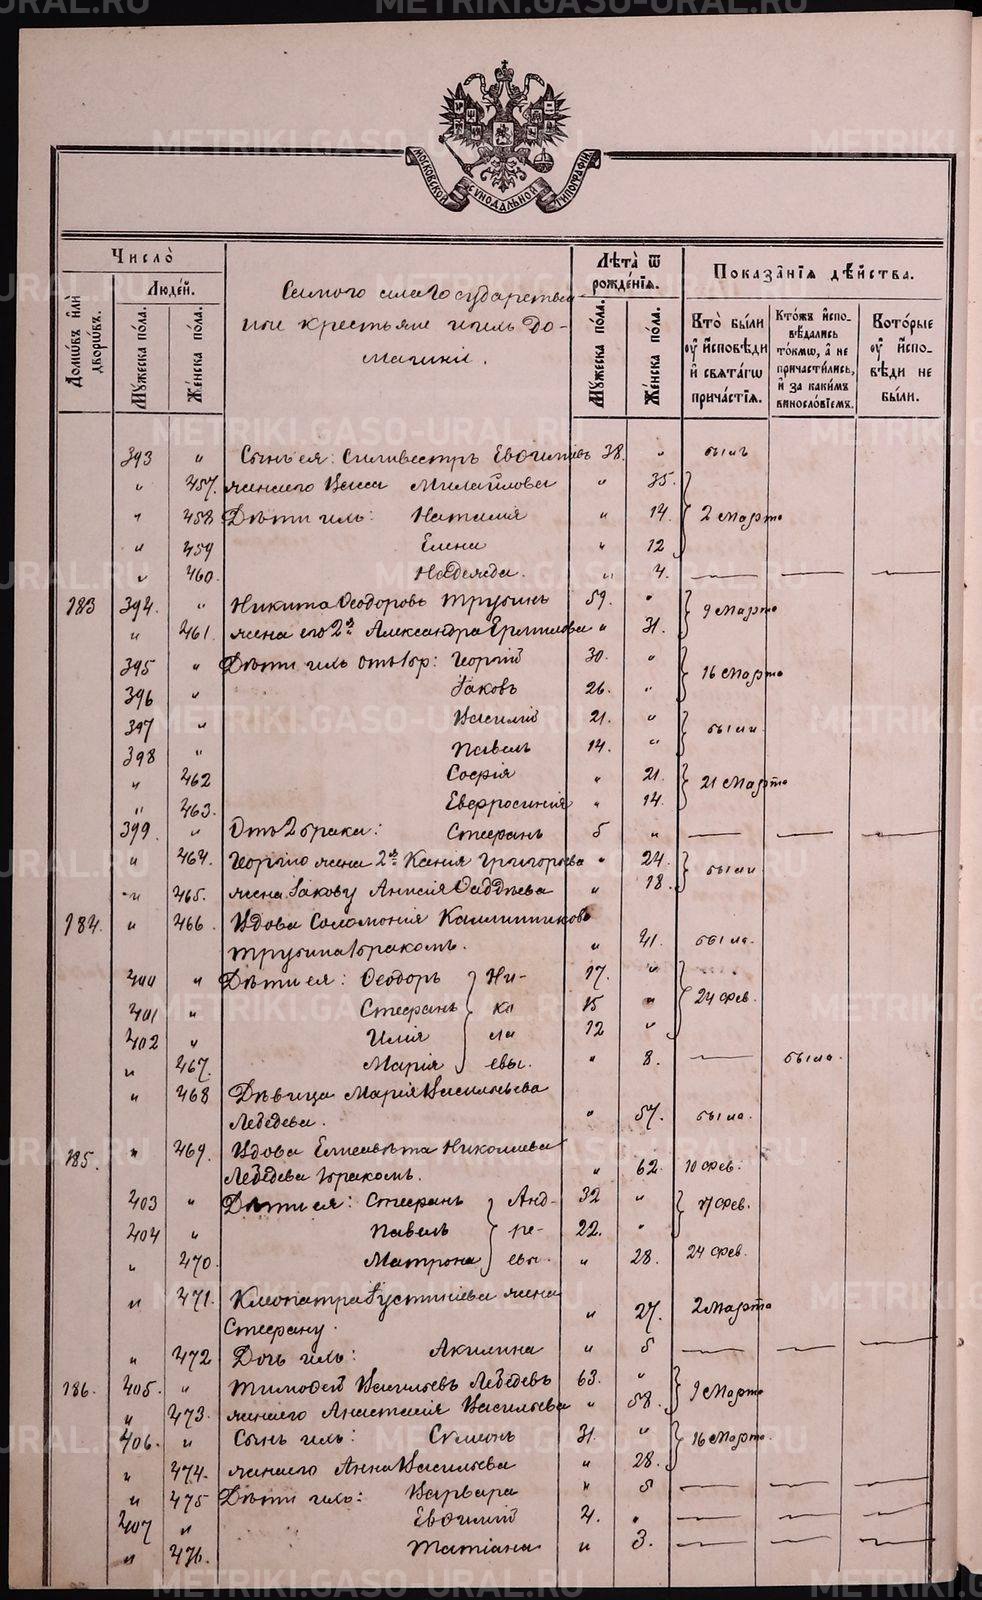 МОСКОВСКОЙ СѴНОДАЛЬНОЙ ТИПОГРАФІИ
Число̀
Людей.
Домѡвъ и҆лѝ дворѡвъ.
Мꙋжеска по́ла.
Же́нска по́ла.
Самого села Государствен-
ные крестьяне и ихъ до-
машніе.
Лѣта̀ ѿ рожде́нїѧ.
Мꙋжеска по́ла.
Же́нска по́ла.
Показа̑нїѧ дѣ́йства.
Кто̀ бы́ли оу҆ и҆сповѣди и҆ свѧта́гѡ прича́стїѧ.
Кто́жъ и҆спо-вѣдались то́кмѡ, а҆ не причасти́лись, и҆ за каки́мъ винословїемъ.
Кото́рые оу҆ и҆спо-вѣди не бы́ли.
393 " Сынъ ея: Сильвестръ Евѳиміевъ 38. " былъ
" 457. жена его Васса Михайлова " 35.
" 458 Дѣти ихъ: Наталія " 14. 2 Марта
" 459 Елена " 12
" 460. Надежда. " 4. — — —
183 394. " Никита Ѳеодоровъ Трубинъ 59. " 9 Марта
" 461. жена его 2ª Александра Ермилова " 31.
395 " Дѣти ихъ отъ 1 бр: Георгій 30. " 16 Марта
396 " Іаковъ 26. "
397 " Василій 21. " были
398 " Павелъ 14. "
" 462 Софія " 21. 21 Марта
" 463. Евфросинія " 14.
399 " Отъ 2 брака: Стефанъ 5 " — — —
" 464. Георгію жена 2ª Ксенія Григорьева " 24. были
" 465. жена Іакову Анисія Ѳаддѣева " 18.
184. " 466 Вдова Соломонія Каллиникова
Трубина 1 бракомъ. " 41. была.
400 " Дѣти ея: Ѳеодоръ Ни- 17. "
401 " Стефанъ ко 15 " 24 Фев.
402 " Илія ла 12 "
" 467. Марія евы. " 8. — была.
" 468 Дѣвица Марія Васильева
Лебедева. " 57. была.
185. " 469. Вдова Елисавѣта Николаева
Лебедева 1 бракомъ. " 62. 10 Фев.
403 " Дѣти ея: Стефанъ Анд- 32 " 17 Фев.
404 " Павелъ ре- 22. "
" 470. Матрона евы. " 28. 24 Фев.
" 471. Клеопатра Іустиніева жена
Стефану. " 27. 2 Марта
" 472 Дочь ихъ: Акилина " 5 — — —
186. 405. " Тимоѳей Васильевъ Лебедевъ 63. " 9 Марта
" 473. жена его Анастасія Васильева " 58.
406. " Сынъ ихъ: Сѵмеонъ 31. " 16 Марта.
" 474. жена его Анна Васильева " 28.
" 475 Дѣти ихъ: Варвара " 5 — — —
407 " Евѳимій 4. " — — —
" 476. Татіана " 3. — — —
METRIKI.GASO-URAL.RU